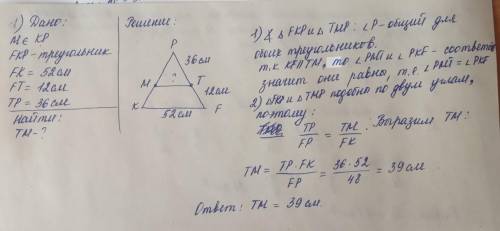 1) Дано:
M ∈ KP
FKP - треугольник
FK = 52 см
FT = 12 см
TP = 36 см
Найти:
TM - ?
Решение:
P
36см
M
?
T
12см
K
52см
F
1) ∡ △ FKP и △ TMP: ∠P - общий для
обоих треугольников.
т.к. KF ∥ TM, то ∠PMT и ∠PKF - соответств
значит они равны, т.е. ∠PMT = ∠PKF
2) △FKP и △TMP подобны по двум углам,
поэтому:
TP/FP = TM/FK. Выразим TM:
TM = TP · FK/FP = 36 · 52/48 = 39 см
Ответ: TM = 39 см.